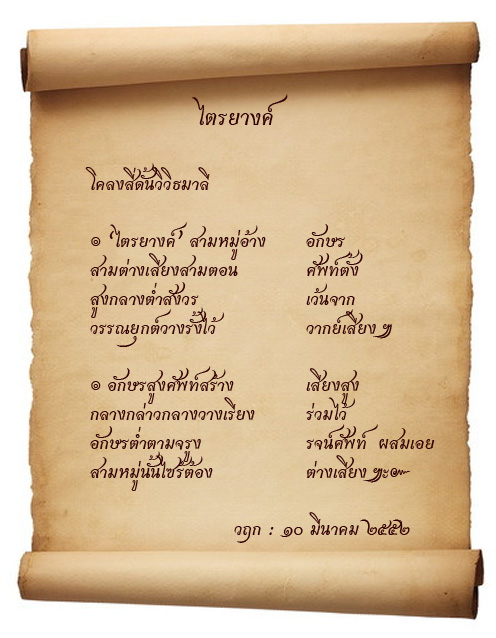 ไตรยางค์
โคลงสี่ดั้นวิวิธมาลี
๑ 'ไตรยางค์' สามหมู่อ้าง อักษร
สามต่างเสียงสามตอน ศัพท์ตั้ง
สูงกลางต่ำสังวร เว้นจาก
วรรณยุกต์วางรั้งไว้ วากย์เสียง ๆ
๑ อักษรสูงศัพท์สร้าง เสียงสูง
กลางกล่าวกลางวางเรียง ร่วมไว้
อักษรต่ำตามจรูง รจน์ศัพท์ ผสมเอย
สามหมู่นั้นไซร้ต้อง ต่างเสียง ๆะ๛
วฤก : ๑๐ มีนาคม ๒๕๕๒